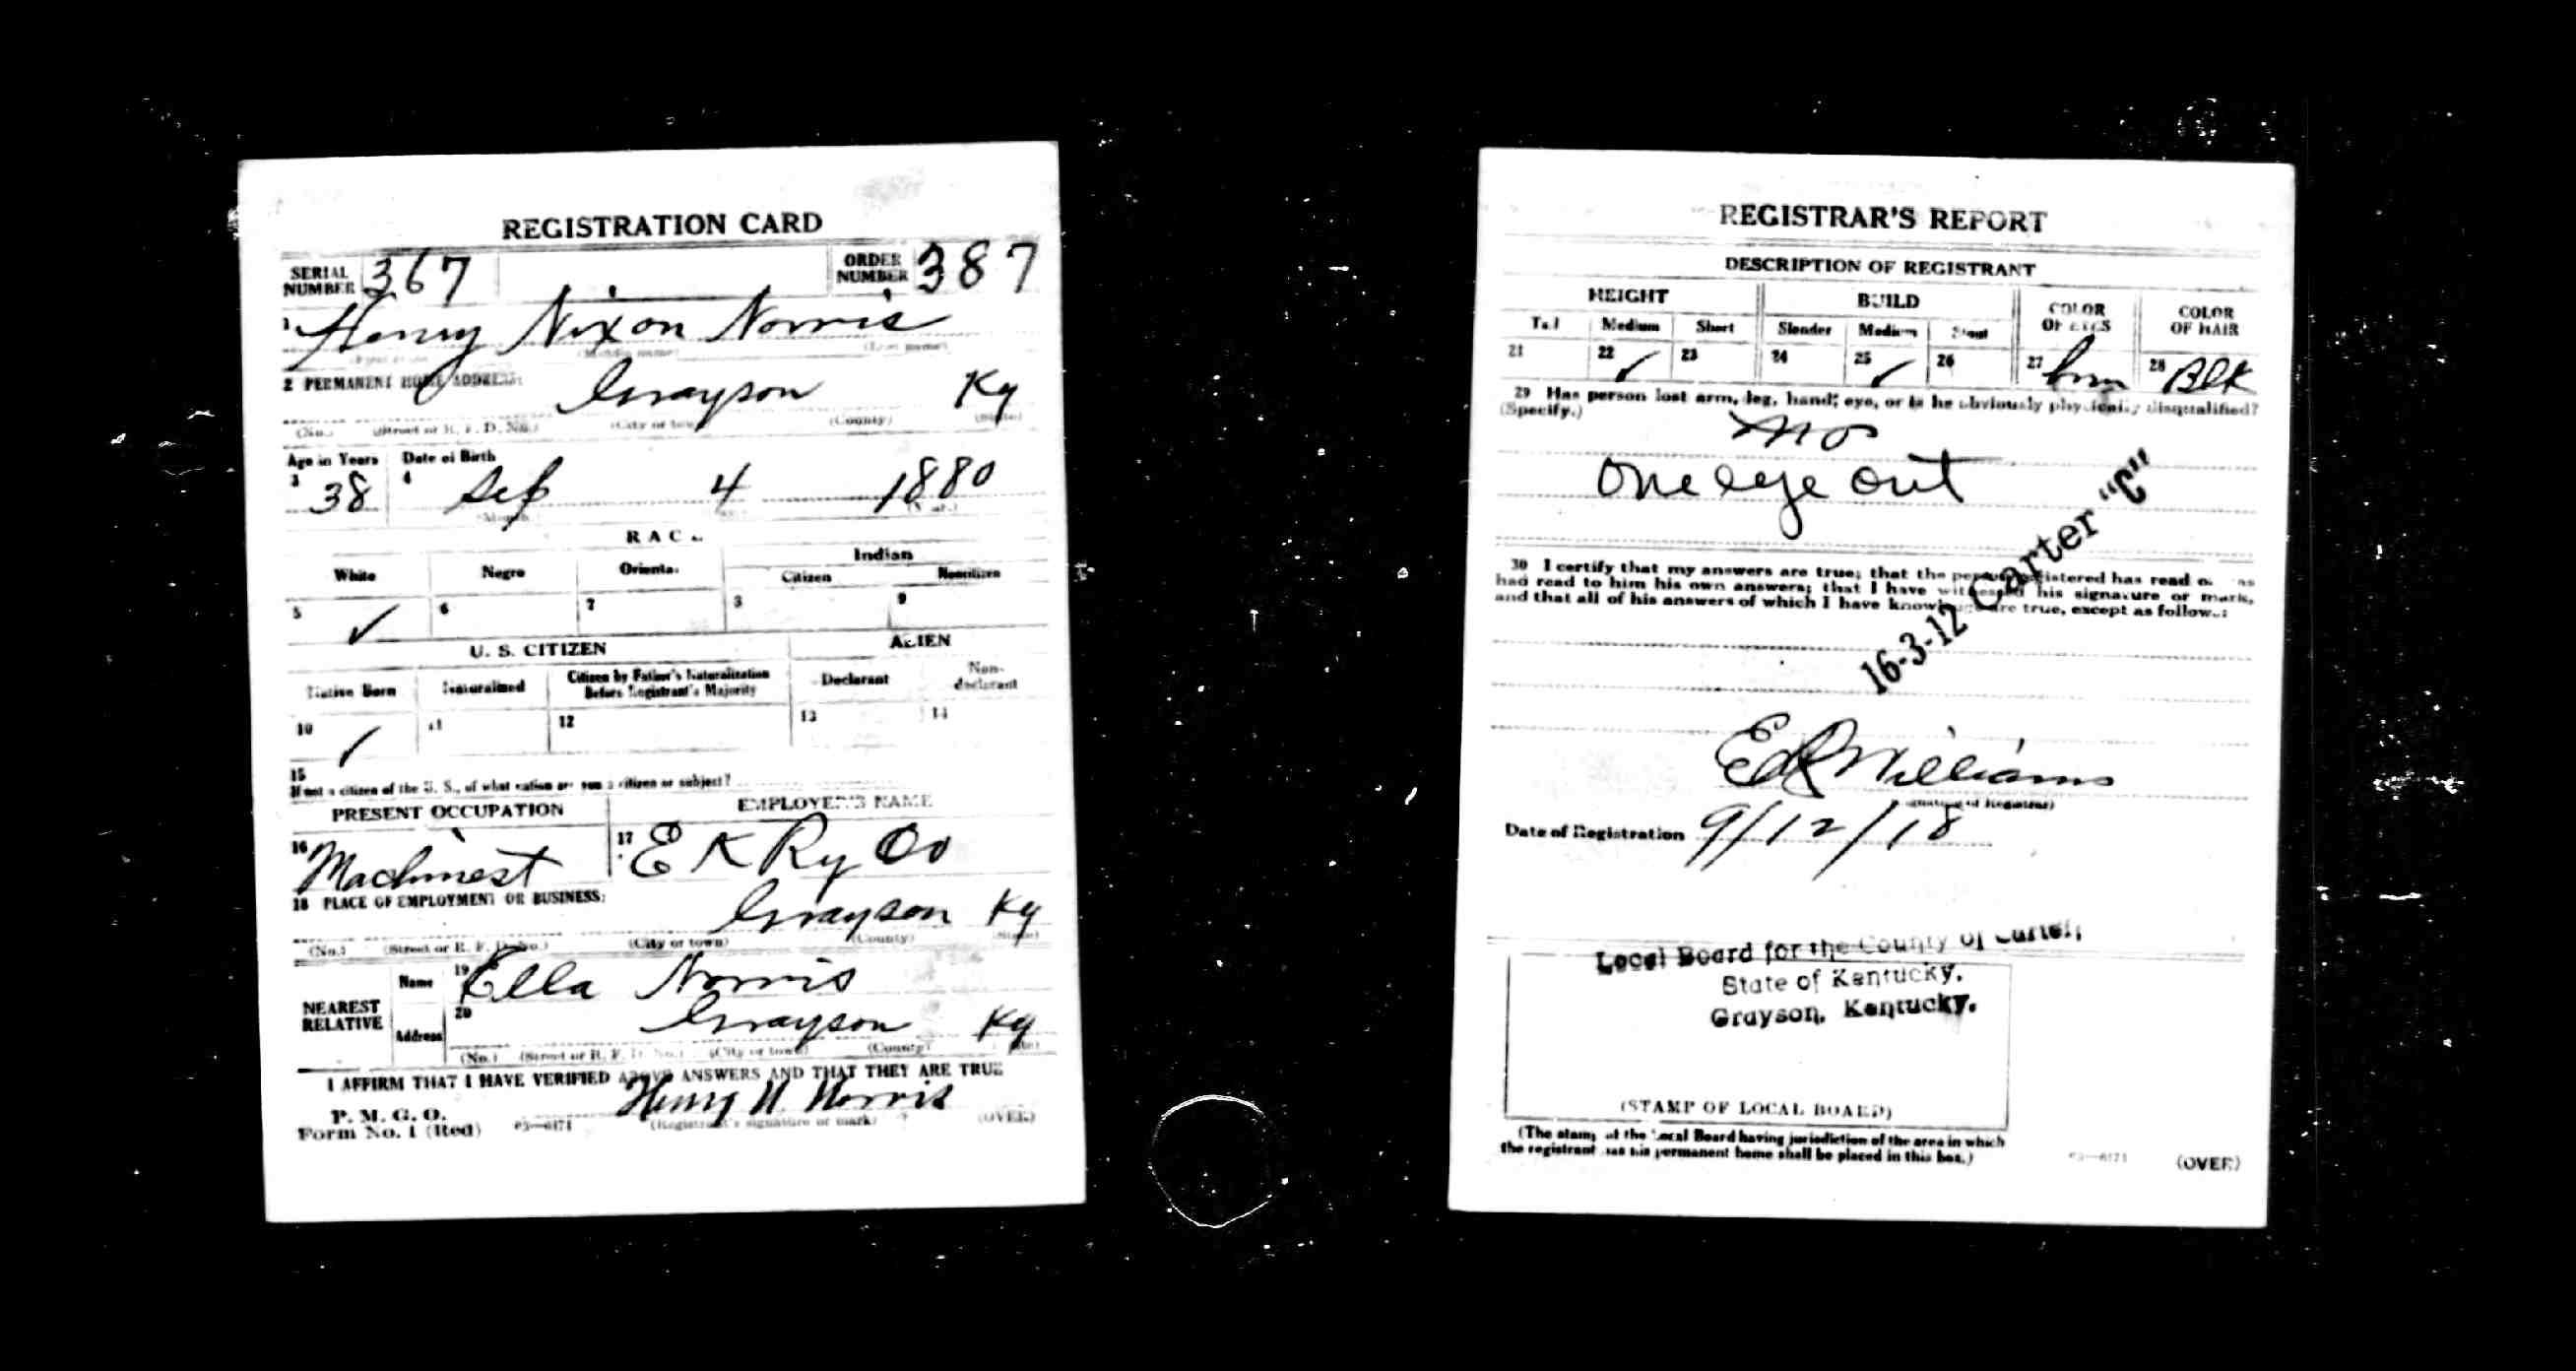 REGISTRATION CARD
SERIAL NUMBER 367 ORDER NUMBER 387
1 Henry Nixon Norris
(Middle name) (Last name)
2 PERMANENT HOME ADDRESS:
Grayson Ky
(No.) (Street or R. F. D. No.) (City or town) (County) (State)
Age in Years Date of Birth
3 38 4 Sep 4 1880
RAC
Indian
White Negro Orienta. Citizen Noncitizen
5 ✓ 6 7 8 9
U. S. CITIZEN ALIEN
Native Born Naturalized Citizen by Father's Naturalization Before Registrant's Majority Declarant Non-declarant
10 ✓ 11 12 13 14
15
If not a citizen of the U. S., of what nation are you a citizen or subject?
PRESENT OCCUPATION EMPLOYER'S NAME
16 Machinest 17 E K Ry Co
18 PLACE OF EMPLOYMENT OR BUSINESS:
Grayson Ky
(No.) (Street or R. F. D. No.) (City or town) (County) (State)
NEAREST RELATIVE
Name 19 Ella Norris
Address 20 Grayson Ky
(No.) (Street or R. F. D. No.) (City or town) (County) (State)
I AFFIRM THAT I HAVE VERIFIED ABOVE ANSWERS AND THAT THEY ARE TRUE
P. M. G. O.
Form No. 1 (Red) 03—6171 Henry N. Norris
(Registrant's signature or mark) (OVER)
REGISTRAR'S REPORT
DESCRIPTION OF REGISTRANT
HEIGHT BUILD COLOR OF EYES COLOR OF HAIR
Tall Medium Short Slender Medium Stout
21 22 ✓ 23 24 25 ✓ 26 27 brn 28 Blk
29 Has person lost arm, leg, hand, eye, or is he obviously physically disqualified?
(Specify.)
no
One eye out
16-3-12 Carter "C"
30 I certify that my answers are true; that the person registered has read or has
had read to him his own answers; that I have witnessed his signature or mark,
and that all of his answers of which I have knowledge are true, except as follows:
Ed Williams
(Signature of Registrar)
Date of Registration 9/12/18
Local Board for the County of Carter,
State of Kentucky,
Grayson, Kentucky.
(STAMP OF LOCAL BOARD)
(The stamp of the Local Board having jurisdiction of the area in which
the registrant has his permanent home shall be placed in this box.)
03—6171 (OVER)